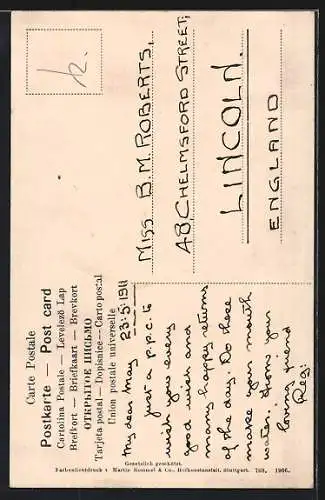 Carte Postale
Postkarte — Post card
Cartolina Postale — Levelező Lap
Brefkort — Briefkaart — Brevkort
ОТКРЫТОЕ ПИСЬМО
Tarjeta postal — Dopisnice — Carto postal
Union postale universelle
My dear May 23:5:1911
just a p.p.c. to
wish you every
good wish and
many happy returns
of the day. Do these
make your mouth
water. From your
loving friend
Reg:
MISS B. M. ROBERTS,
48 CHELMSFORD STREET,
LINCOLN.
ENGLAND
Gesetzlich geschützt.
Farbenlichtdruck v. Martin Rommel & Co., Hofkunstanstalt, Stuttgart. 753. 1906.